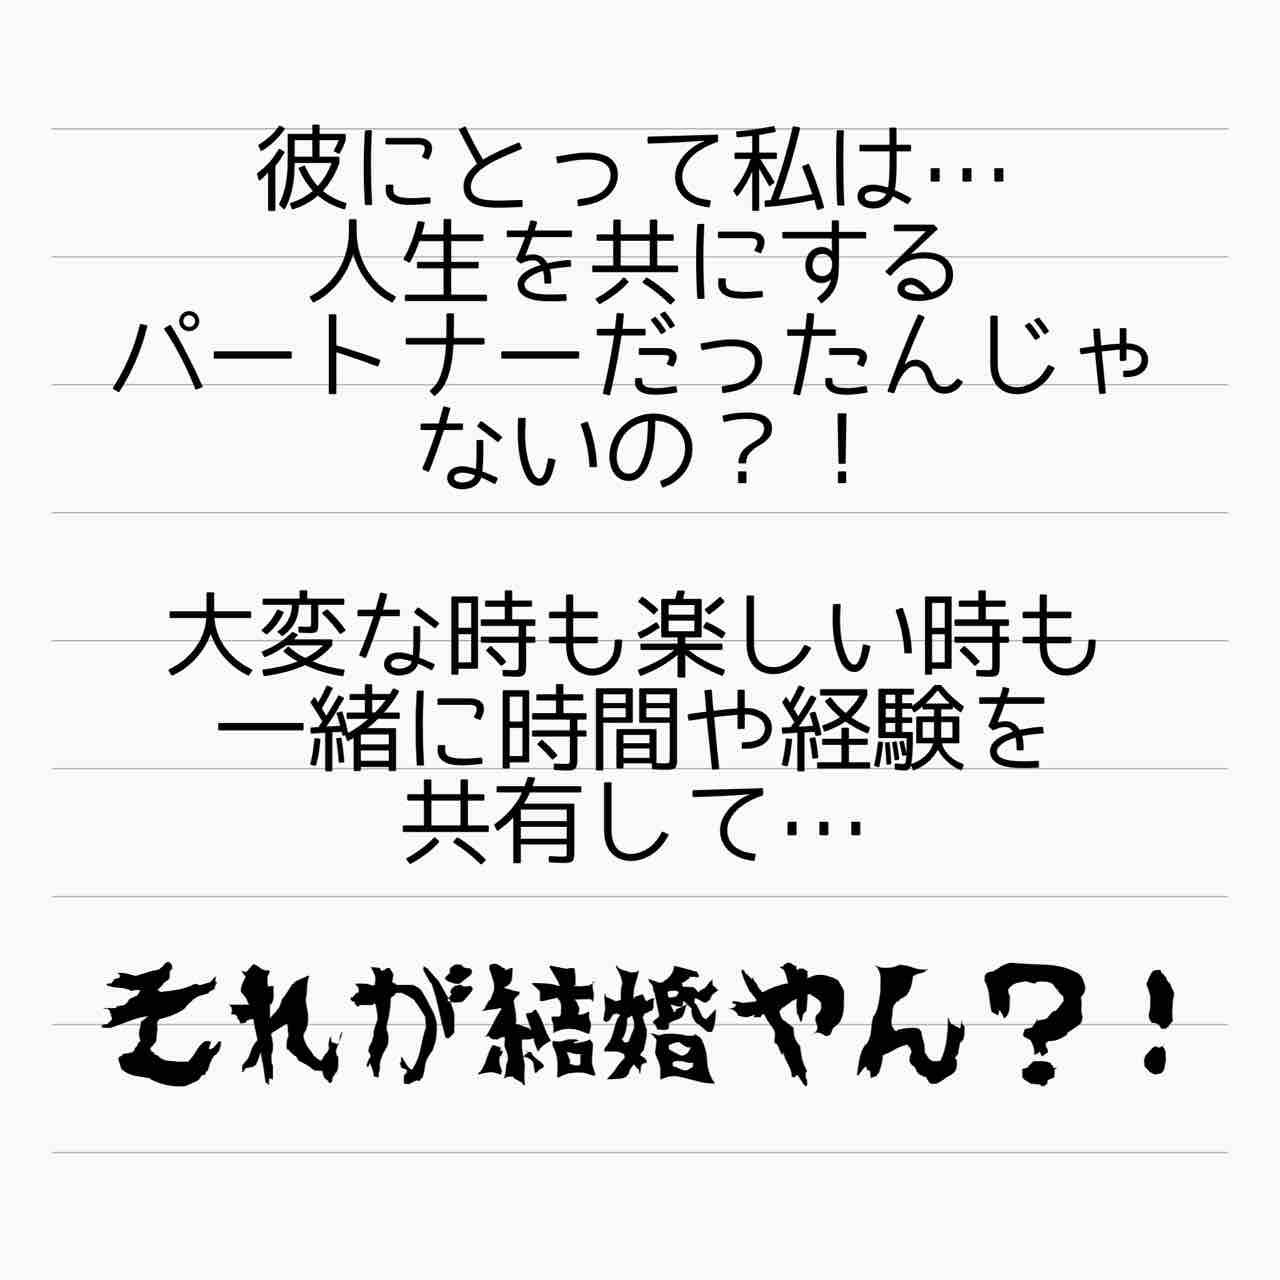 彼にとって私は…
人生を共にする
パートナーだったんじゃ
ないの？！
大変な時も楽しい時も
一緒に時間や経験を
共有して…
それが結婚やん？！